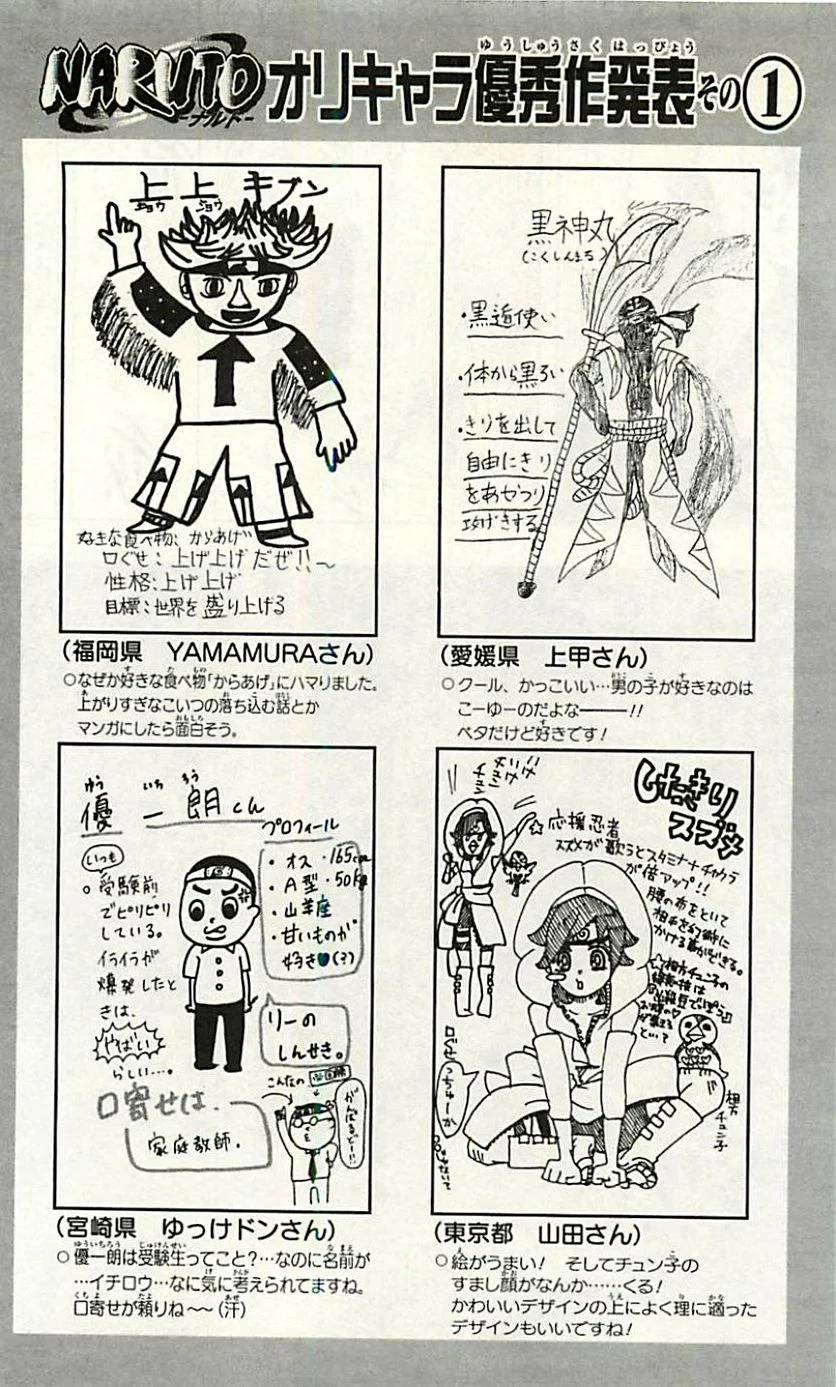 NARUTO
ーナルトー
オリキャラ優秀作発表その①
ゆうしゅうさくはっぴょう
上上キブン
ジョウ ジョウ
好きな食べ物: からあげ
口ぐせ: 上げ上げだぜ!!~
性格:上げ上げ
目標:世界を盛り上げる
(福岡県 YAMAMURAさん)
○なぜか好きな食べ物「からあげ」にハマりました。
上がりすぎなこいつの落ち込む話とか
マンガにしたら面白そう。
黒神丸
(こくしんまる)
・黒遁使い
・体から黒ろい
・きりを出して
自由にきり
をあやつり
攻げきする
(愛媛県 上甲さん)
○クール、かっこいい…男の子が好きなのは
こーゆーのだよな―――!!
ベタだけど好きです!
優一朗くん
ゆう いち ろう
いつも
○受験前
でピリピリ
している。
イライラが
爆発したと
きは、
やばい
らしい…。
プロフィール
・オス ・165cm
・A型 ・50kg
・山羊座
・甘いものが
好き♥(?)
リーの
しんせき。
口寄せは、
家庭教師。
こんなの
がんばるぞー!!
(宮崎県 ゆっけドンさん)
○優一朗は受験生ってこと?…なのに名前が
…イチロウ…なに気に考えられてますね。
口寄せが頼りね~~(汗)
したきり
スズメ
☆応援忍者
スズメが歌うとスタミナ+チャクラ
が倍アップ!!
腰の布をといて
相手を幻術に
かける事ができる。
口ぐせ
っちゅーか
相方
チュン子
(東京都 山田さん)
○絵がうまい! そしてチュン子の
すまし顔がなんか……くる!
かわいいデザインの上によく理に適った
デザインもいいですね!